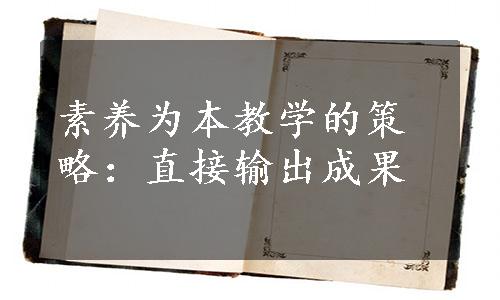 素养为本教学的策
略：直接输出成果